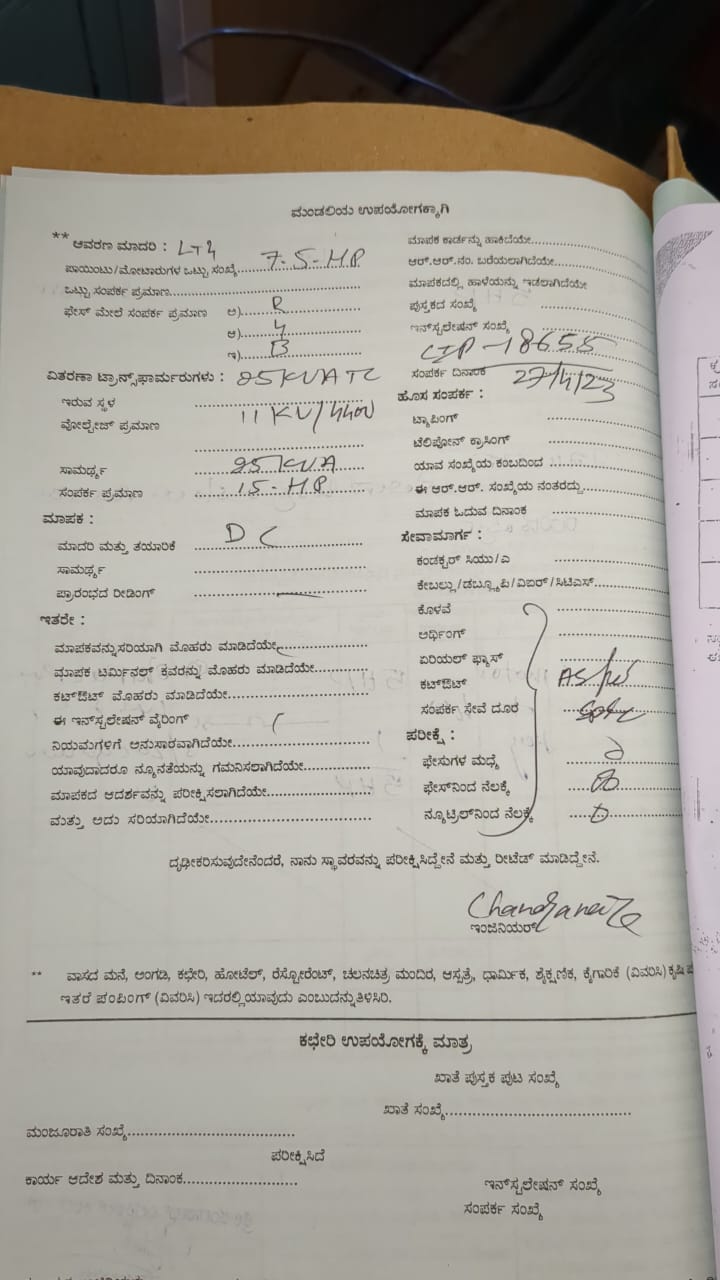 ಮಂಡಲಿಯ ಉಪಯೋಗಕ್ಕಾಗಿ
** ಆವರಣ ಮಾದರಿ : LT4
ಪಾಯಿಂಟು/ಮೋಟಾರುಗಳ ಒಟ್ಟು ಸಂಖ್ಯೆ 7.5-HP
ಒಟ್ಟು ಸಂಪರ್ಕ ಪ್ರಮಾಣ
ಫೇಸ್ ಮೇಲೆ ಸಂಪರ್ಕ ಪ್ರಮಾಣ ಅ) R
ಆ) Y
ಇ) B
ವಿತರಣಾ ಟ್ರಾನ್ಸ್‌ಫಾರ್ಮರುಗಳು : 25KVA TC
ಇರುವ ಸ್ಥಳ
ವೋಲ್ಟೇಜ್ ಪ್ರಮಾಣ 11 KV/440V
ಸಾಮರ್ಥ್ಯ 25 KVA
ಸಂಪರ್ಕ ಪ್ರಮಾಣ 15-HP
ಮಾಪಕ :
ಮಾದರಿ ಮತ್ತು ತಯಾರಿಕೆ DC
ಸಾಮರ್ಥ್ಯ
ಪ್ರಾರಂಭದ ರೀಡಿಂಗ್
ಇತರೇ :
ಮಾಪಕವನ್ನು ಸರಿಯಾಗಿ ಮೊಹರು ಮಾಡಿದೆಯೇ
ಮಾಪಕ ಟರ್ಮಿನಲ್ ಕವರನ್ನು ಮೊಹರು ಮಾಡಿದೆಯೇ
ಕಟ್‌ಔಟ್ ಮೊಹರು ಮಾಡಿದೆಯೇ
ಈ ಇನ್‌ಸ್ಟಲೇಷನ್ ವೈರಿಂಗ್
ನಿಯಮಗಳಿಗೆ ಅನುಸಾರವಾಗಿದೆಯೇ
ಯಾವುದಾದರೂ ನ್ಯೂನತೆಯನ್ನು ಗಮನಿಸಲಾಗಿದೆಯೇ
ಮಾಪಕದ ಆದರ್ಶವನ್ನು ಪರೀಕ್ಷಿಸಲಾಗಿದೆಯೇ
ಮತ್ತು ಅದು ಸರಿಯಾಗಿದೆಯೇ
ಮಾಪಕ ಕಾರ್ಡನ್ನು ಹಾಕಿದೆಯೇ
ಆರ್.ಆರ್.ನಂ. ಬರೆಯಲಾಗಿದೆಯೇ
ಮಾಪಕದಲ್ಲಿ ಹಾಳೆಯನ್ನು ಇಡಲಾಗಿದೆಯೇ
ಪುಸ್ತಕದ ಸಂಖ್ಯೆ
ಇನ್‌ಸ್ಟಲೇಷನ್ ಸಂಖ್ಯೆ
CIP-18655
ಸಂಪರ್ಕ ದಿನಾಂಕ 27/4/23
ಹೊಸ ಸಂಪರ್ಕ :
ಟ್ಯಾಪಿಂಗ್
ಟೆಲಿಫೋನ್ ಕ್ರಾಸಿಂಗ್
ಯಾವ ಸಂಖ್ಯೆಯ ಕಂಬದಿಂದ
ಈ ಆರ್.ಆರ್. ಸಂಖ್ಯೆಯ ನಂತರದ್ದು
ಮಾಪಕ ಓದುವ ದಿನಾಂಕ
ಸೇವಾಮಾರ್ಗ :
ಕಂಡಕ್ಟರ್ ಸಿಯು/ಎ
ಕೇಬಲ್ಲು/ಡಬ್ಲ್ಯೂಪಿ/ವಿಐರ್/ಸಿಟಿಎಸ್
ಕೊಳವೆ
ಅರ್ಥಿಂಗ್
ಏರಿಯಲ್ ಫ್ಯೂಸ್
ಕಟ್‌ಔಟ್ AS per
ಸಂಪರ್ಕ ಸೇವೆ ದೂರ
ಪರೀಕ್ಷೆ :
ಫೇಸುಗಳ ಮಧ್ಯೆ
ಫೇಸ್‌ನಿಂದ ನೆಲಕ್ಕೆ
ನ್ಯೂಟ್ರಲ್‌ನಿಂದ ನೆಲಕ್ಕೆ
ದೃಢೀಕರಿಸುವುದೇನೆಂದರೆ, ನಾನು ಸ್ಥಾವರವನ್ನು ಪರೀಕ್ಷಿಸಿದ್ದೇನೆ ಮತ್ತು ರೀಟೆಡ್ ಮಾಡಿದ್ದೇನೆ.
ಇಂಜಿನಿಯರ್
** ವಾಸದ ಮನೆ, ಅಂಗಡಿ, ಕಛೇರಿ, ಹೋಟೆಲ್, ರೆಸ್ಟೋರೆಂಟ್, ಚಲನಚಿತ್ರ ಮಂದಿರ, ಆಸ್ಪತ್ರೆ, ಧಾರ್ಮಿಕ, ಶೈಕ್ಷಣಿಕ, ಕೈಗಾರಿಕೆ (ವಿವರಿಸಿ) ಕೃಷಿ
ಇತರೆ ಪಂಪಿಂಗ್ (ವಿವರಿಸಿ) ಇದರಲ್ಲಿ ಯಾವುದು ಎಂಬುದನ್ನು ತಿಳಿಸಿರಿ.
ಕಛೇರಿ ಉಪಯೋಗಕ್ಕೆ ಮಾತ್ರ
ಖಾತೆ ಪುಸ್ತಕ ಪುಟ ಸಂಖ್ಯೆ
ಖಾತೆ ಸಂಖ್ಯೆ
ಮಂಜೂರಾತಿ ಸಂಖ್ಯೆ
ಪರೀಕ್ಷಿಸಿದೆ
ಕಾರ್ಯ ಆದೇಶ ಮತ್ತು ದಿನಾಂಕ
ಇನ್‌ಸ್ಟಲೇಷನ್ ಸಂಖ್ಯೆ
ಸಂಪರ್ಕ ಸಂಖ್ಯೆ